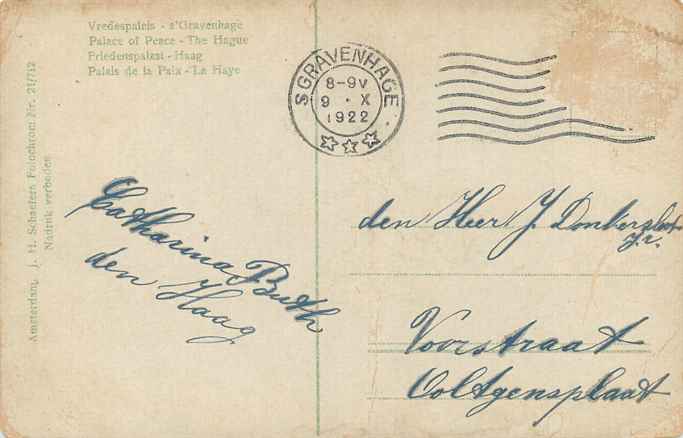 Vredespaleis - s'Gravenhage
Palace of Peace - The Hague
Friedenspalast - Haag
Palais de la Paix - La Haye
S GRAVENHAGE
8-9V
9 · X
1922
Amsterdam, J. H. Schaefers Fotochrom Nr. 21/712
Nadruk verboden
Catharina Buth
den Haag
den Heer J. Donkersloot
Jr.
Voorstraat
Ooltgensplaat